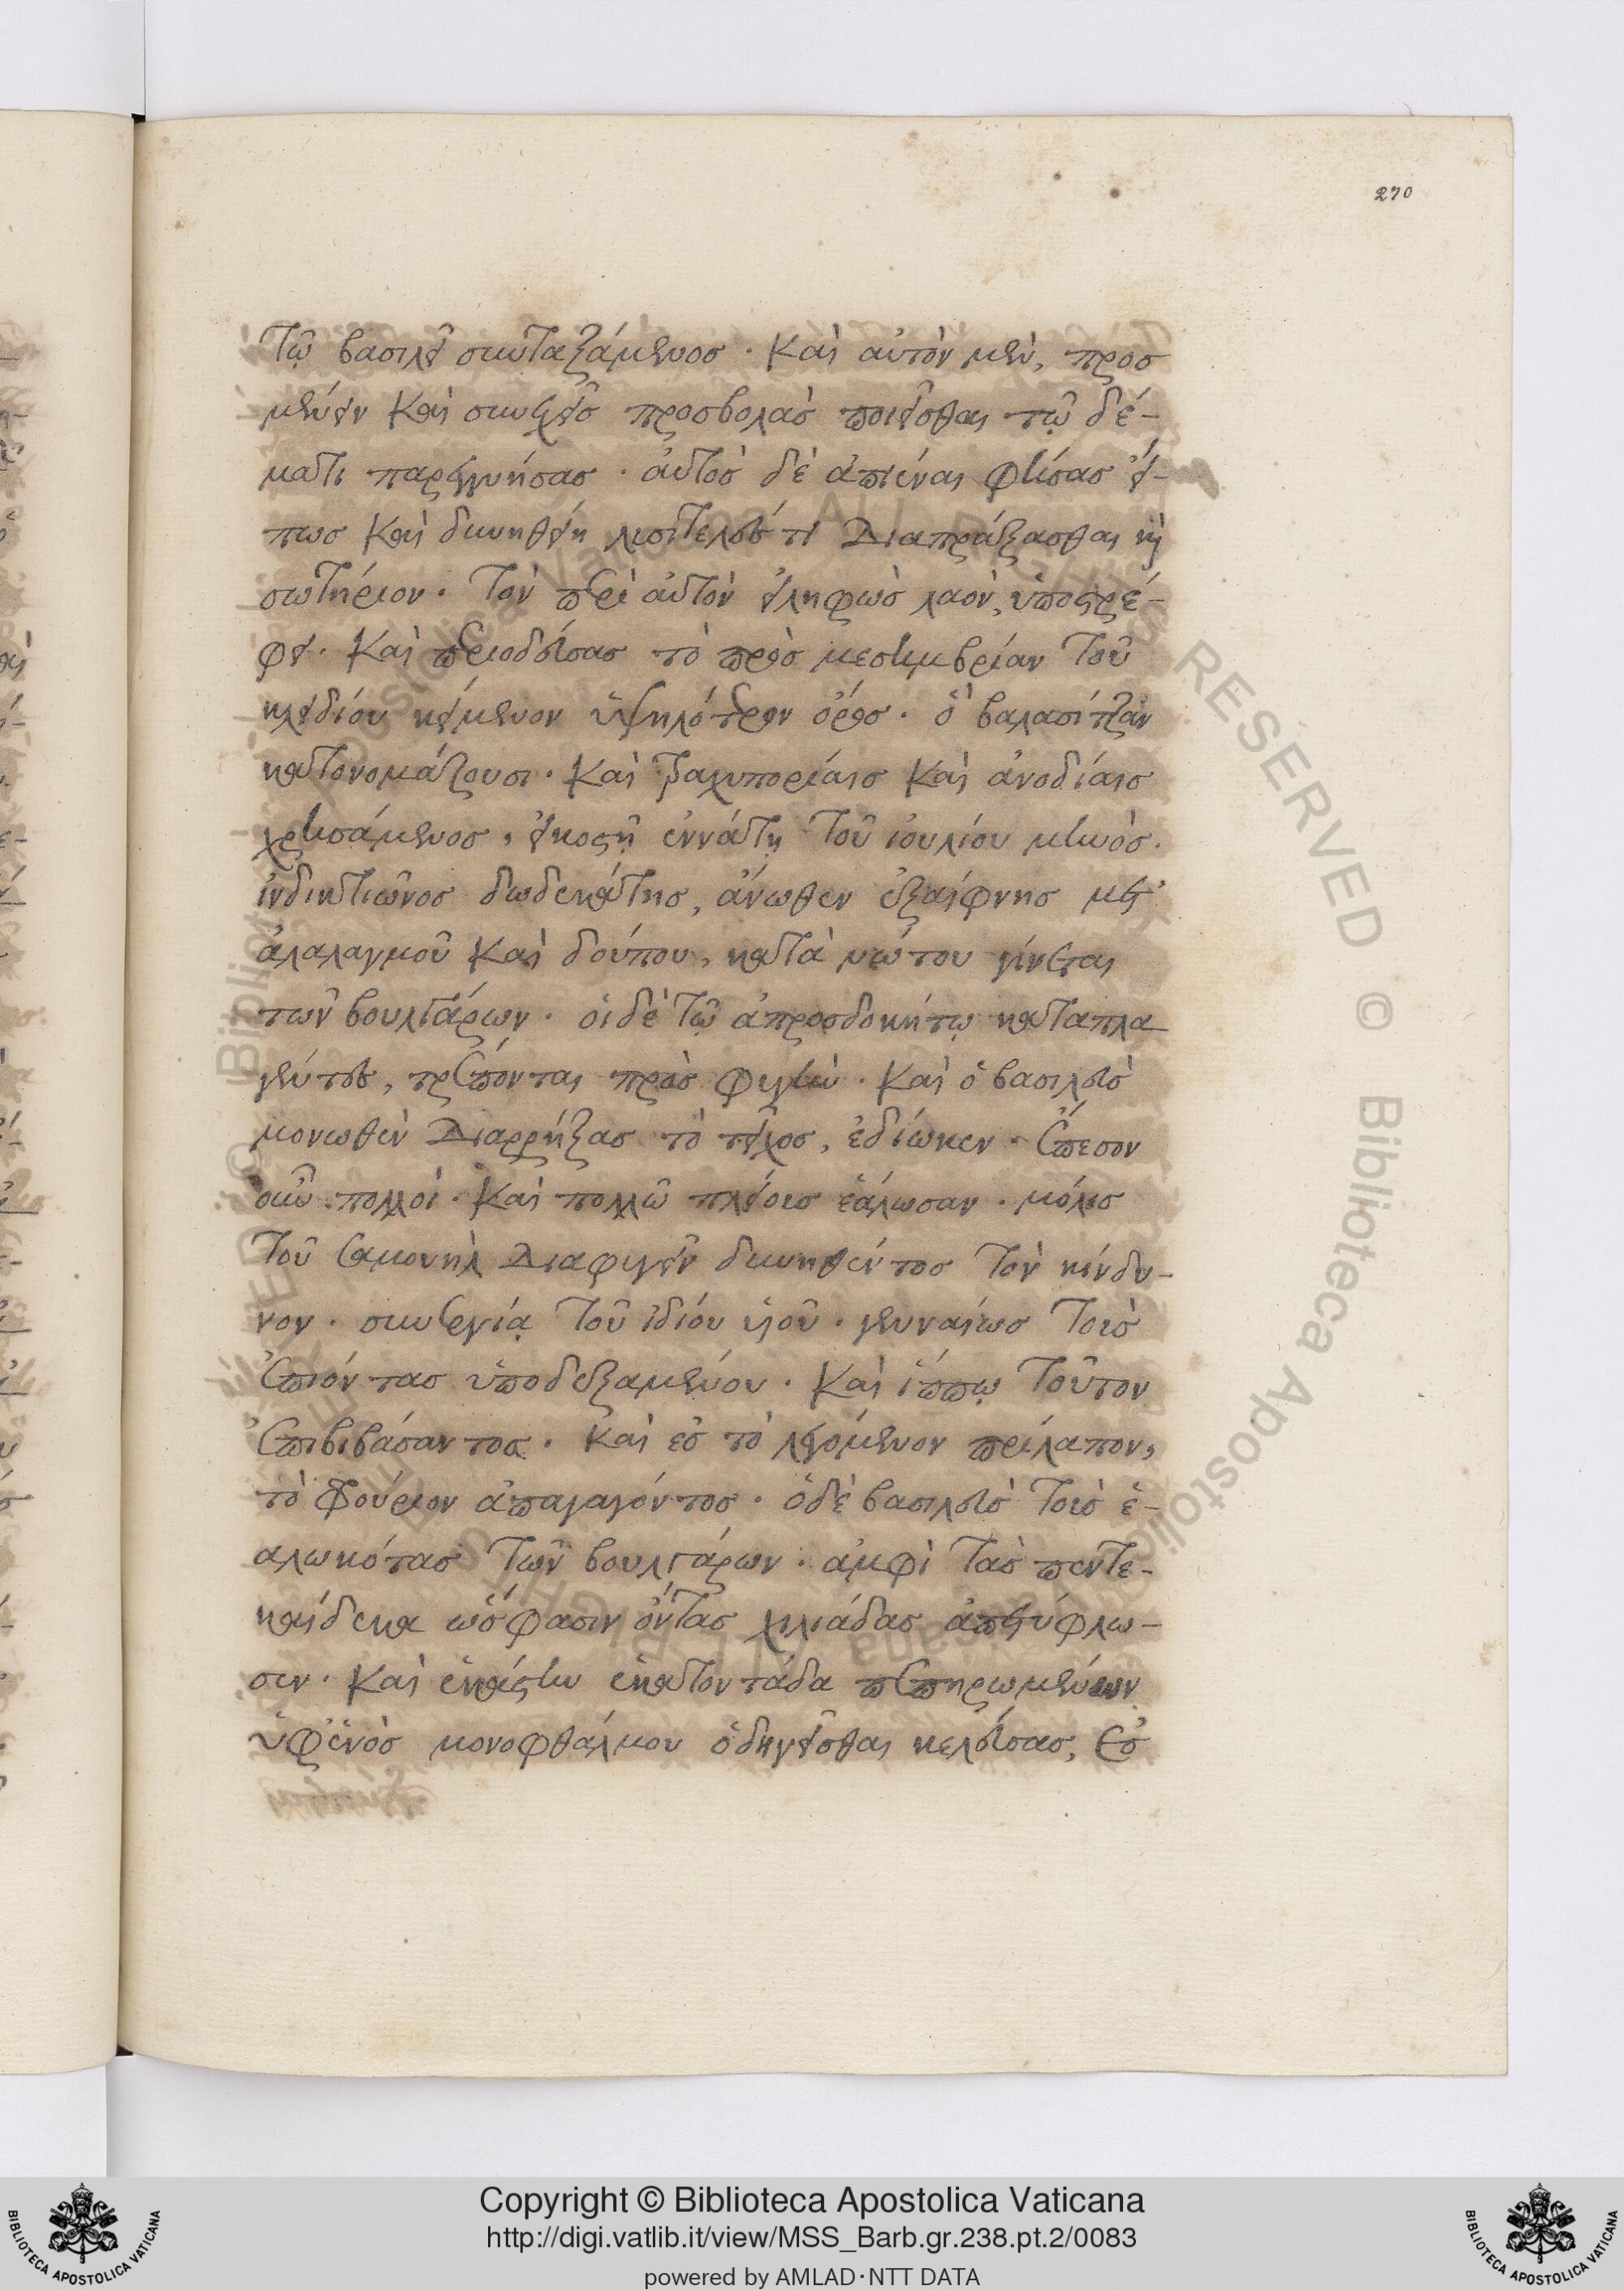 270
τῷ βασιλεῖ συνταξάμενος · καὶ αὐτὸν μὲν, προσ
μένειν καὶ συνεχεῖς προσβολὰς ποιεῖσθαι τῷ δέ-
ματι παρεγγυήσας · αὐτὸς δὲ ἀπιέναι φήσας εἴ-
πως καὶ δυνηθείη λυσιτελές τι διαπράξασθαι καὶ
σωτήριον · τὸν περὶ αὐτὸν εἰληφὼς λαὸν, ὑποστρέ-
φει · καὶ περιοδεύσας τὸ πρὸς μεσημβρίαν τοῦ
κλειδίου κείμενον ὑψηλότερον ὄρος · ὃ βαλασίτζαν
κατονομάζουσι · καὶ τραχυπορίαις καὶ ἀνοδίαις
χρησάμενος, εἰκοστῇ ἐννάτῃ τοῦ ἰουλίου μηνὸς ·
ἰνδικτιῶνος δωδεκάτης, ἄνωθεν ἐξαίφνης μετ'
ἀλαλαγμοῦ καὶ δούπου, κατὰ νώτου γίνεται
τῶν βουλγάρων · οἱ δὲ τῷ ἀπροσδοκήτῳ καταπλα
γέντες, τρέπονται πρὸς φυγήν · καὶ ὁ βασιλεὺς
μονωθὲν διαρρήξας τὸ τεῖχος, ἐδίωκεν · ἔπεσον
οὖν πολλοί · καὶ πολλῶ πλείοις ἑάλωσαν · μόλις
τοῦ σαμουὴλ διαφυγεῖν δυνηθέντος τὸν κίνδυ-
νον · συνεργίᾳ τοῦ ἰδίου υἱοῦ · γενναίως τοὺς
ἐπιόντας ὑποδεξαμένου · καὶ ἵππῳ τοῦτον
ἐπιβιβάσαντος · καὶ ἐς τὸ λεγόμενον πρίλαπον,
τὸ φρούριον ἀπαγαγόντος · ὁ δὲ βασιλεὺς τοὺς ἑ-
αλωκότας τῶν βουλγάρων · ἀμφὶ τὰς πεντε-
καίδεκα ὥς φασιν ὄντας χιλιάδας ἀπετύφλω-
σεν · καὶ ἑκάστην ἑκατοντάδα πεπηρωμένων
ὑφ' ἑνὸς μονοφθάλμου ὁδηγεῖσθαι κελεύσας, ἐς
Copyright © Biblioteca Apostolica Vaticana
http://digi.vatlib.it/view/MSS_Barb.gr.238.pt.2/0083
powered by AMLAD·NTT DATA